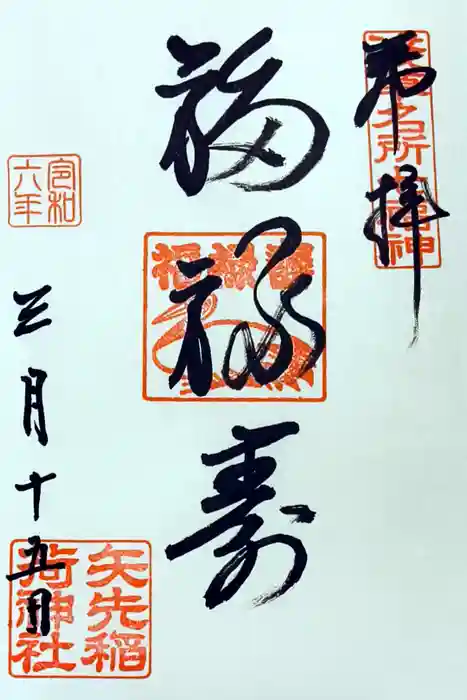 奉拝
浅草名所七福神
福禄寿
令和六年
三月十五日
矢先稲荷神社